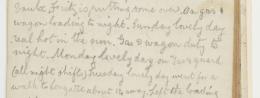 Fritz is putting some over. On gas
wagon loading to night. Sunday lovely day
real hot in the sun, Gas & wagon duty to
night. Monday lovely day on Gas guard
(all night shift) Tuesday lovely day went for a
walk to about 12 away. Left the loading